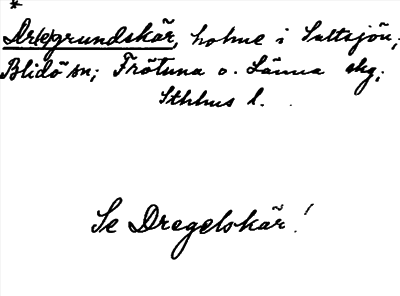 *
Dr(e)grundskär, holme i Saltsjön;
Blidö sn; Frötuna o. Länna skg;
Sthlms l.
Se Dregelskär!